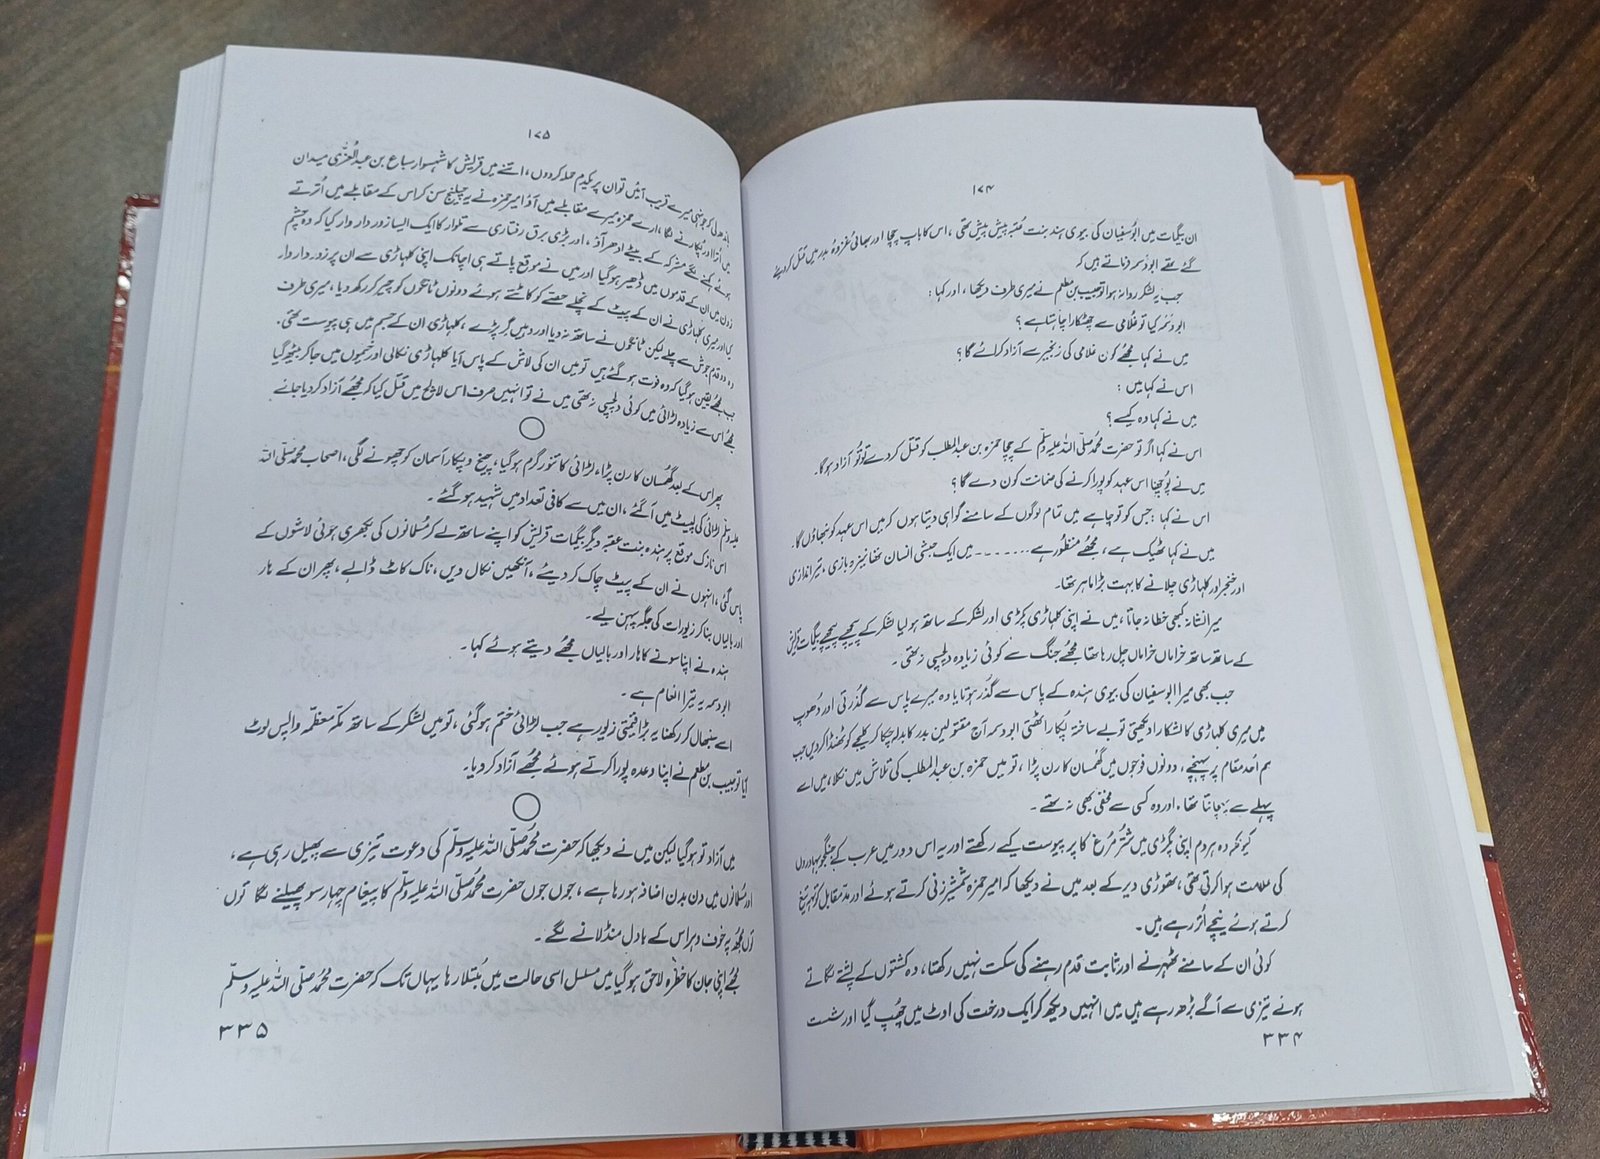 ۱۷۴
ان بیگمات میں ابوسفیان کی بیوی ہند بنت عتبہ پیش پیش تھی، اس کا باپ چچا اور بھائی غزوہ بدر میں قتل کر دیئے
گئے تھے ابو دسمہ بتاتے ہیں کہ
جب یہ لشکر روانہ ہوا تو جبیب بن مطعم نے میری طرف دیکھا، اور کہا:
ابو دسمہ کیا تو غلامی سے چھٹکارا چاہتا ہے؟
میں نے کہا مجھے کون غلامی کی زنجیر سے آزاد کرائے گا؟
اس نے کہا میں:
میں نے کہا وہ کیسے؟
اس نے کہا اگر تو حضرت محمد صلی اللہ علیہ وسلم کے چچا حمزہ بن عبدالمطلب کو قتل کر دے تو تُو آزاد ہو گا۔
میں نے پوچھا اس عہد کو پورا کرنے کی ضمانت کون دے گا؟
اس نے کہا: جس کو تو چاہے میں تمام لوگوں کے سامنے گواہی دیتا ہوں کہ میں اس عہد کو نبھاؤں گا۔
میں نے کہا ٹھیک ہے، مجھے منظور ہے ....... میں ایک حبشی انسان تھا نیزہ بازی، تیر اندازی
اور خنجر اور کلہاڑی چلانے کا بہت بڑا ماہر تھا۔
میرا نشانہ کبھی خطا نہ جاتا، میں نے اپنی کلہاڑی پکڑی اور لشکر کے ساتھ ہو لیا لشکر کے پیچھے پیچھے بیگمات قریش
کے ساتھ ساتھ خراماں خراماں چل رہا تھا مجھے جنگ سے کوئی زیادہ دلچسپی نہ تھی۔
جب بھی میرا ابوسفیان کی بیوی ہندہ کے پاس سے گذر ہوتا یا وہ میرے پاس سے گذرتی اور دھوپ
میں میری کلہاڑی کا لشکارا دیکھتی تو بے ساختہ پکار اٹھتی ابو دسمہ آج مقتولین بدر کا بدلہ چکا کر کلیجے کو ٹھنڈا کر دیں جب
ہم اُحد مقام پر پہنچے، دونوں فوجوں میں گھمسان کا رن پڑا، تو میں حمزہ بن عبدالمطلب کی تلاش میں نکلا، میں اسے
پہلے سے پہچانتا تھا، اور وہ کسی سے مخفی بھی نہ تھے۔
کیونکہ وہ ہر دم اپنی پگڑی میں شتر مرغ کا پر پیوست کیے رکھتے اور یہ اس دور میں عرب کے جنگجو بہادروں
کی علامت ہوا کرتی تھی، تھوڑی دیر کے بعد میں نے دیکھا کہ امیر حمزہ شمشیر زنی کرتے ہوئے اور مدّ مقابل کو تہ تیغ
کرتے ہوئے نیچے اُتر رہے ہیں۔
کوئی ان کے سامنے ٹھہرنے اور ثابت قدم رہنے کی سکت نہیں رکھتا، وہ کشتوں کے پشتے لگاتے
ہوئے تیزی سے آگے بڑھ رہے ہیں میں انہیں دیکھ کر ایک درخت کی اوٹ میں چھپ گیا اور شست
۳۳۴
۱۷۵
باندھ لی کہ جونہی میرے قریب آئیں تو ان پر یکدم حملہ کر دوں، اتنے میں قریش کا شہسوار سباع بن عبدالعزیٰ میدان
میں اُترا اور پکارنے لگا، ارے حمزہ میرے مقابلے میں آؤ امیر حمزہ نے یہ چیلنج سن کر اس کے مقابلے میں اُترتے
ہوئے کہنے لگے مشرکہ کے بیٹے ادھر آؤ، اور بڑی برق رفتاری سے تلوار کا ایک ایسا زور دار وار کیا کہ وہ چشم
زدن میں ان کے قدموں میں ڈھیر ہو گیا اور میں نے موقع پاتے ہی اچانک اپنی کلہاڑی سے ان پر زور دار وار
کیا اور میری کلہاڑی نے ان کے پیٹ کے نچلے حصے کو کاٹتے ہوئے دونوں ٹانگوں کو چیر کر رکھ دیا، میری طرف
وہ دو قدم جوش سے چلے لیکن ٹانگوں نے ساتھ نہ دیا اور وہیں گر پڑے، کلہاڑی ان کے جسم میں ہی پیوست تھی۔
جب مجھے یقین ہو گیا کہ وہ فوت ہو گئے ہیں تو میں ان کی لاش کے پاس آیا کلہاڑی نکالی اور خیموں میں جا کر بیٹھ گیا
مجھے اس سے زیادہ لڑائی میں کوئی دلچسپی نہ تھی میں نے تو انہیں صرف اس لالچ میں قتل کیا کہ مجھے آزاد کر دیا جائے
پھر اس کے بعد گھمسان کا رن پڑا، لڑائی کا تنور گرم ہو گیا، چیخ و پکار آسمان کو چھونے لگی، اصحاب محمد صلی اللہ
علیہ وسلم لڑائی کی لپیٹ میں آ گئے، ان میں سے کافی تعداد میں شہید ہو گئے۔
اس نازک موقع پر ہندہ بنت عقبہ دیگر بیگمات قریش کو اپنے ساتھ لے کر مسلمانوں کی بکھری ہوئی لاشوں کے
پاس گئی، انہوں نے ان کے پیٹ چاک کر دیئے، آنکھیں نکال دیں، ناک کاٹ ڈالے، پھر ان کے ہار
اور بالیاں بنا کر زیورات کی جگہ پہن لیے۔
ہندہ نے اپنا سونے کا ہار اور بالیاں مجھے دیتے ہوئے کہا۔
ابو دسمہ یہ تیرا انعام ہے۔
اسے سنبھال کر رکھنا یہ بڑا قیمتی زیور ہے جب لڑائی ختم ہو گئی، تو میں لشکر کے ساتھ مکہ معظمہ واپس لوٹ
آیا تو جبیب بن مطعم نے اپنا وعدہ پورا کرتے ہوئے مجھے آزاد کر دیا۔
میں آزاد تو ہو گیا لیکن میں نے دیکھا کہ حضرت محمد صلی اللہ علیہ وسلم کی دعوت تیزی سے پھیل رہی ہے،
اور مسلمانوں میں دن بدن اضافہ ہو رہا ہے، جوں جوں حضرت محمد صلی اللہ علیہ وسلم کا پیغام چہار سو پھیلنے لگا توں
توں مجھ پر خوف و ہراس کے بادل منڈلانے لگے۔
مجھے اپنی جان کا خطرہ لاحق ہو گیا میں مسلسل اسی حالت میں مبتلا رہا یہاں تک کہ حضرت محمد صلی اللہ علیہ وسلم
۳۳۵